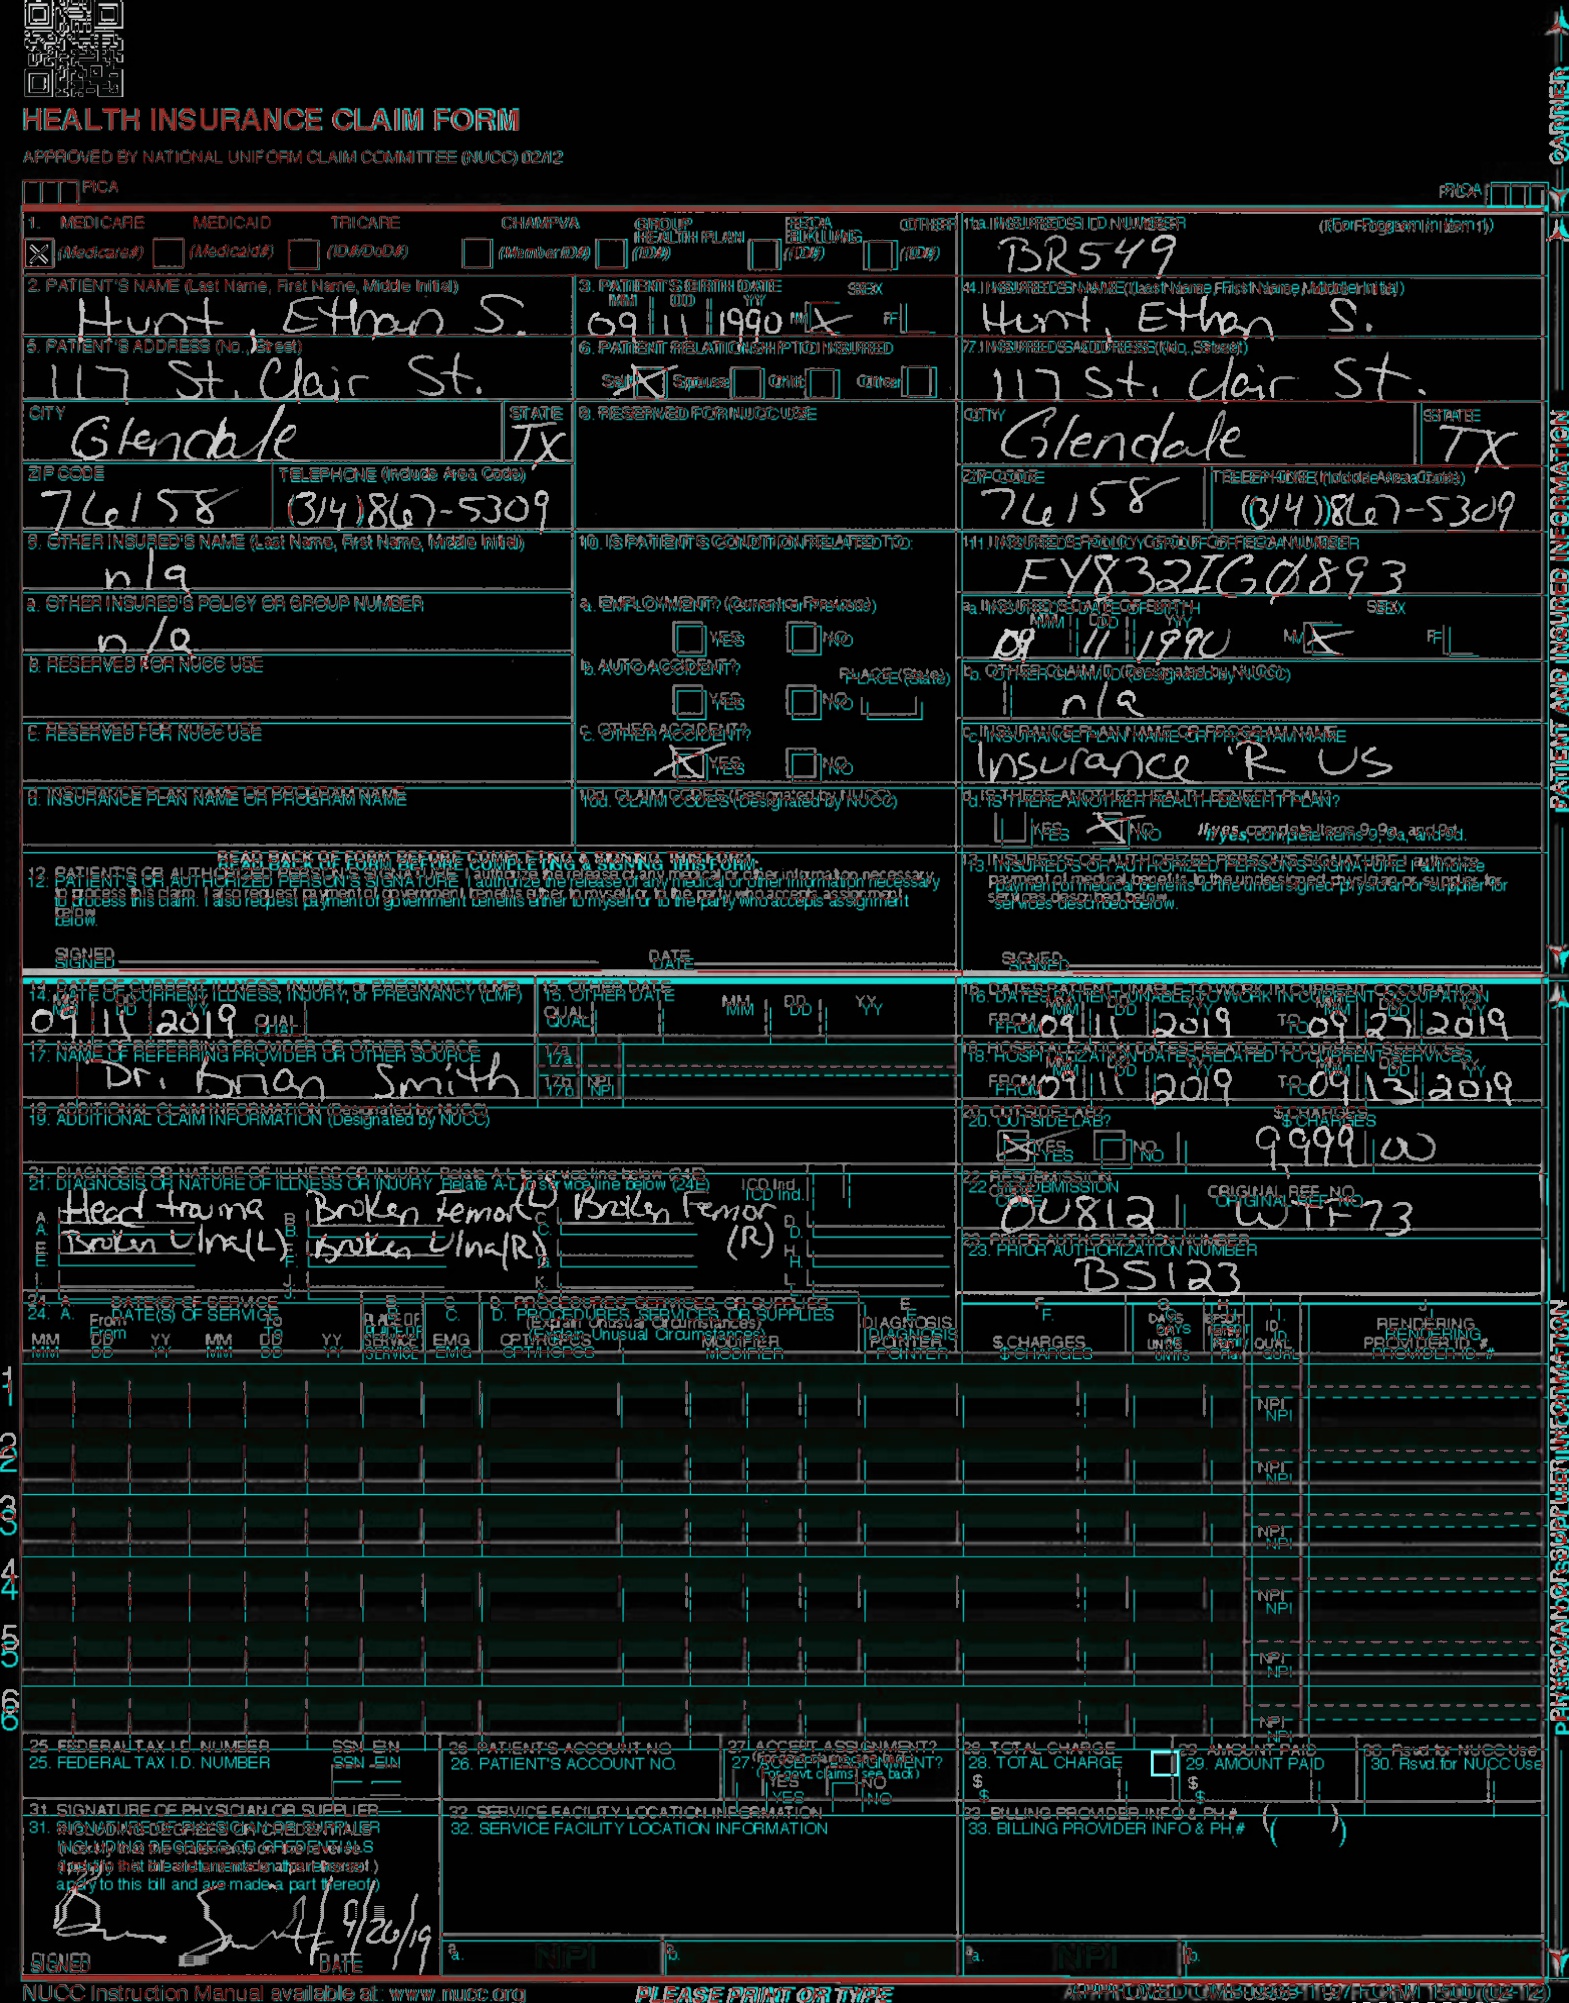 HEALTH INSURANCE CLAIM FORM
APPROVED BY NATIONAL UNIFORM CLAIM COMMITTEE (NUCC) 02/12
PICA
PICA
CARRIER
1. MEDICARE MEDICAID TRICARE CHAMPVA GROUP HEALTH PLAN FECA BLK LUNG OTHER
(Medicare#) (Medicaid#) (ID#/DoD#) (Member ID#) (ID#) (ID#) (ID#)
1a. INSURED'S I.D. NUMBER (For Program in Item 1)
BR549
2. PATIENT'S NAME (Last Name, First Name, Middle Initial)
Hunt, Ethan S.
3. PATIENT'S BIRTH DATE SEX
MM DD YY
09 11 1990 M X F
4. INSURED'S NAME (Last Name, First Name, Middle Initial)
Hunt, Ethan S.
5. PATIENT'S ADDRESS (No., Street)
117 St. Clair St.
6. PATIENT RELATIONSHIP TO INSURED
Self Spouse Child Other
7. INSURED'S ADDRESS (No., Street)
117 St. Clair St.
CITY STATE
Glendale TX
8. RESERVED FOR NUCC USE
CITY STATE
Glendale TX
ZIP CODE TELEPHONE (Include Area Code)
76158 (314)867-5309
ZIP CODE TELEPHONE (Include Area Code)
76158 (314)867-5309
9. OTHER INSURED'S NAME (Last Name, First Name, Middle Initial)
n/a
10. IS PATIENT'S CONDITION RELATED TO:
11. INSURED'S POLICY GROUP OR FECA NUMBER
FY832IGØ893
a. OTHER INSURED'S POLICY OR GROUP NUMBER
n/a
a. EMPLOYMENT? (Current or Previous)
YES NO
a. INSURED'S DATE OF BIRTH SEX
MM DD YY
09 11 1990 M X F
b. RESERVED FOR NUCC USE
b. AUTO ACCIDENT? PLACE (State)
YES NO
b. OTHER CLAIM ID (Designated by NUCC)
n/a
c. RESERVED FOR NUCC USE
c. OTHER ACCIDENT?
X YES NO
c. INSURANCE PLAN NAME OR PROGRAM NAME
Insurance 'R US
d. INSURANCE PLAN NAME OR PROGRAM NAME
10d. CLAIM CODES (Designated by NUCC)
d. IS THERE ANOTHER HEALTH BENEFIT PLAN?
YES X NO If yes, complete items 9, 9a, and 9d.
PATIENT AND INSURED INFORMATION
READ BACK OF FORM BEFORE COMPLETING & SIGNING THIS FORM.
12. PATIENT'S OR AUTHORIZED PERSON'S SIGNATURE I authorize the release of any medical or other information necessary
to process this claim. I also request payment of government benefits either to myself or to the party who accepts assignment
below.
SIGNED DATE
13. INSURED'S OR AUTHORIZED PERSON'S SIGNATURE I authorize
payment of medical benefits to the undersigned physician or supplier for
services described below.
SIGNED
14. DATE OF CURRENT ILLNESS, INJURY, or PREGNANCY (LMP)
MM DD YY
09 11 2019 QUAL.
15. OTHER DATE
QUAL. MM DD YY
16. DATES PATIENT UNABLE TO WORK IN CURRENT OCCUPATION
MM DD YY MM DD YY
FROM 09 11 2019 TO 09 27 2019
17. NAME OF REFERRING PROVIDER OR OTHER SOURCE
Dr. Brian Smith
17a.
17b. NPI
18. HOSPITALIZATION DATES RELATED TO CURRENT SERVICES
MM DD YY MM DD YY
FROM 09 11 2019 TO 09 13 2019
19. ADDITIONAL CLAIM INFORMATION (Designated by NUCC)
20. OUTSIDE LAB? $ CHARGES
X YES NO 9,999 00
21. DIAGNOSIS OR NATURE OF ILLNESS OR INJURY Relate A-L to service line below (24E) ICD Ind.
A. Head trauma B. Broken Femor(L) C. Broken Femor (R) D.
E. Broken Ulna(L) F. Broken Ulna(R) G. H.
I. J. K. L.
22. RESUBMISSION CODE ORIGINAL REF. NO.
OU812 WTF73
23. PRIOR AUTHORIZATION NUMBER
BS123
24. A. DATE(S) OF SERVICE B. C. D. PROCEDURES, SERVICES, OR SUPPLIES E. F. G. H. I. J.
From To PLACE OF SERVICE EMG (Explain Unusual Circumstances) DIAGNOSIS POINTER $ CHARGES DAYS OR UNITS EPSDT Family Plan ID. QUAL. RENDERING PROVIDER ID. #
MM DD YY MM DD YY CPT/HCPCS MODIFIER
1 NPI
2 NPI
3 NPI
4 NPI
5 NPI
6 NPI
PHYSICIAN OR SUPPLIER INFORMATION
25. FEDERAL TAX I.D. NUMBER SSN EIN
26. PATIENT'S ACCOUNT NO.
27. ACCEPT ASSIGNMENT?
(For govt. claims, see back)
YES NO
28. TOTAL CHARGE
$
29. AMOUNT PAID
$
30. Rsvd. for NUCC Use
31. SIGNATURE OF PHYSICIAN OR SUPPLIER
INCLUDING DEGREES OR CREDENTIALS
(I certify that the statements on the reverse
apply to this bill and are made a part thereof.)
9/26/19
SIGNED DATE
32. SERVICE FACILITY LOCATION INFORMATION
a. NPI b.
33. BILLING PROVIDER INFO & PH # ( )
a. NPI b.
NUCC Instruction Manual available at: www.nucc.org
PLEASE PRINT OR TYPE
APPROVED OMB-0938-1197 FORM 1500 (02-12)